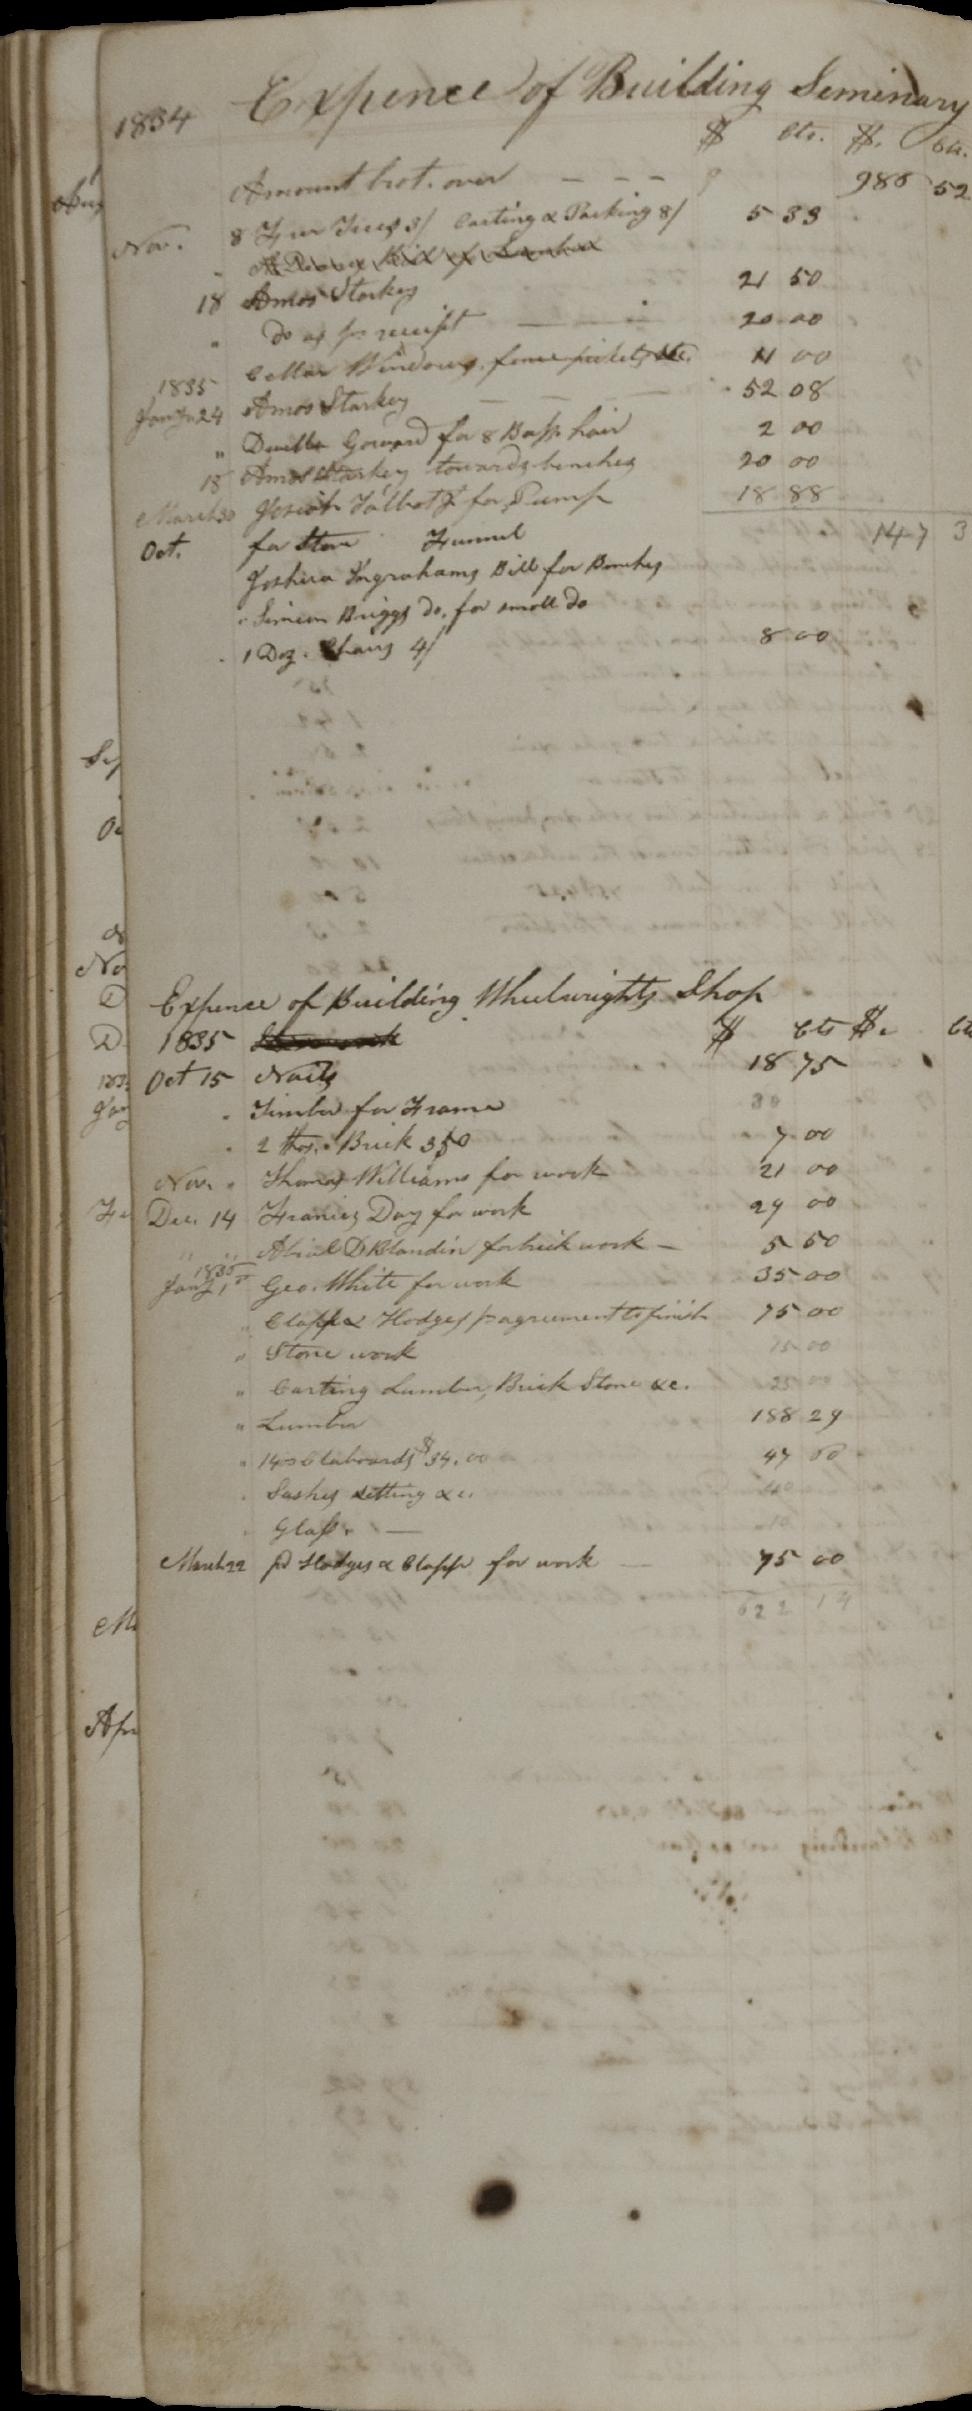 1834 Expence of Building Seminary
$ Cts. $. Cts.
Amount brot. over - - - 986 52
Nov. 8 Fur Trees 3/ Carting & Packing 8/ 5 33
18 Amos Starkey 21 50
" do as pr receipt 20 00
Cellar Windows, fence pickets &c. 11 00
1835
Jany 24 Amos Starkey 52 08
" for 8 Bus. hair 2 00
18 Amos Starkey towards benches 20 00
March 30 Josiah Talbot for Pump 18 88
147 3
Oct. for Stove Funnel
Joshua Ingrahams Bill for Benches
" Simeon Briggs do. for small do
1 Doz. Chairs 4/ 8 00
Expence of Building Wheelwrights Shop
1835 $ Cts $. Ct
Oct 15 Nails 18 75
" Timber for Frame 30
" 2 Thos. Brick 350 7 00
Nov. " Thomas Williams for work 21 00
Dec. 14 Francis Day for work 29 00
" " Abial D Blandin for brick work - 5 50
1836
Jany 1st Geo. White for work 35 00
" Clapp & Hodges pr agreement to finish 75 00
" Stone work 15 00
" Carting Lumber, Brick Stone &c. 25 00
" Lumber 188 29
" 1400 Claboards $34.00 47 60
" Sashes setting &c. 40
" Glass. - 10
March 22 pd Hodges & Clapp for work - 75 00
622 14